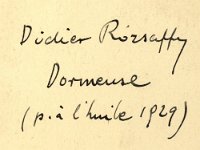 Didier Rózsaffy
Dormeuse
(p. à l'huile 1929)